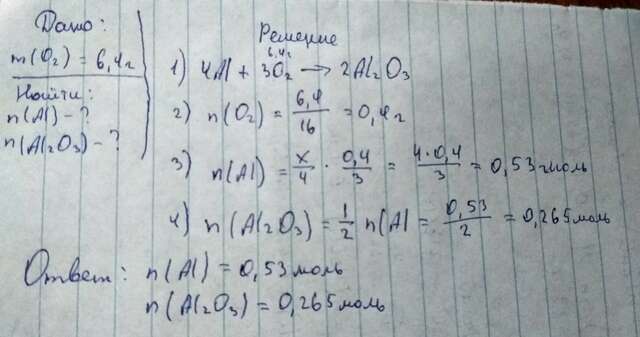 Дано:
m(O₂) = 6,4г
Найти:
n(Al) - ?
n(Al₂O₃) - ?
Решение
6,4г
1) 4Al + 3O₂ → 2Al₂O₃
2) n(O₂) = 6,4/16 = 0,4г
3) n(Al) = x/4 · 0,4/3 = 4·0,4/3 = 0,53 моль
4) n(Al₂O₃) = 1/2 n(Al = 0,53/2 = 0,265 моль
Ответ: n(Al) = 0,53 моль
n(Al₂O₃) = 0,265 моль